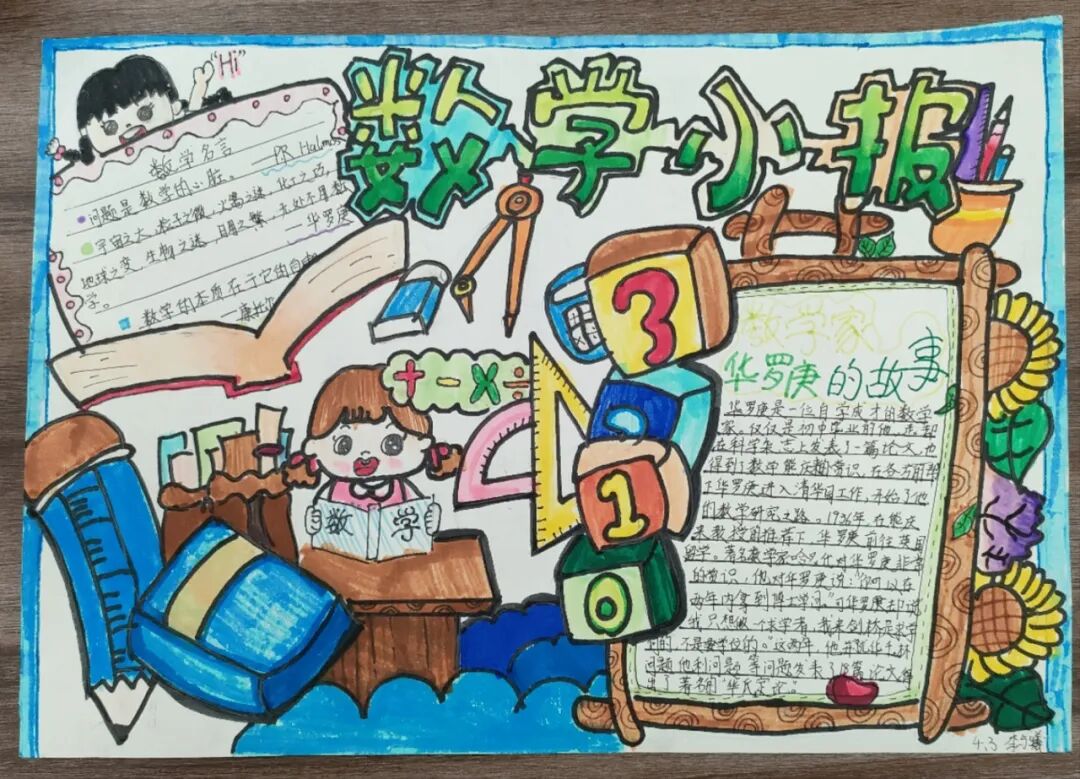 "Hi"
数学小报
数学名言
—PR Halmos
问题是数学的心脏。
宇宙之大,粒子之微,火箭之速,化工之巧,
地球之变,生物之谜,日用之繁,无处不用数
学。
—华罗庚
数学的本质在于它的自由
—康托尔
+ - × ÷
数学
3
0
1
0
数学家
华罗庚的故事
华罗庚是一位自学成才的数学
家,仅仅是初中毕业的他,
在科学杂志上发表了一篇论文,也
得到了数学 熊庆 赏识,在各方
下华罗庚进入清华园工作,开始了他
的数学研究之路。1936年,在熊庆
来教授的推荐下,华罗庚前往英国
留学。著名数学家哈 代对华罗庚非常
的赏识,他对华罗庚说:"你可以在
两年内拿到博士学 。"可华罗庚却说
我只想做一个 学者,我来剑桥是求学
的,不是 学位的。"这两年,他
问题他利问题等问题发表了18篇论文,
出了著名的"华氏定 "。
4.3 李